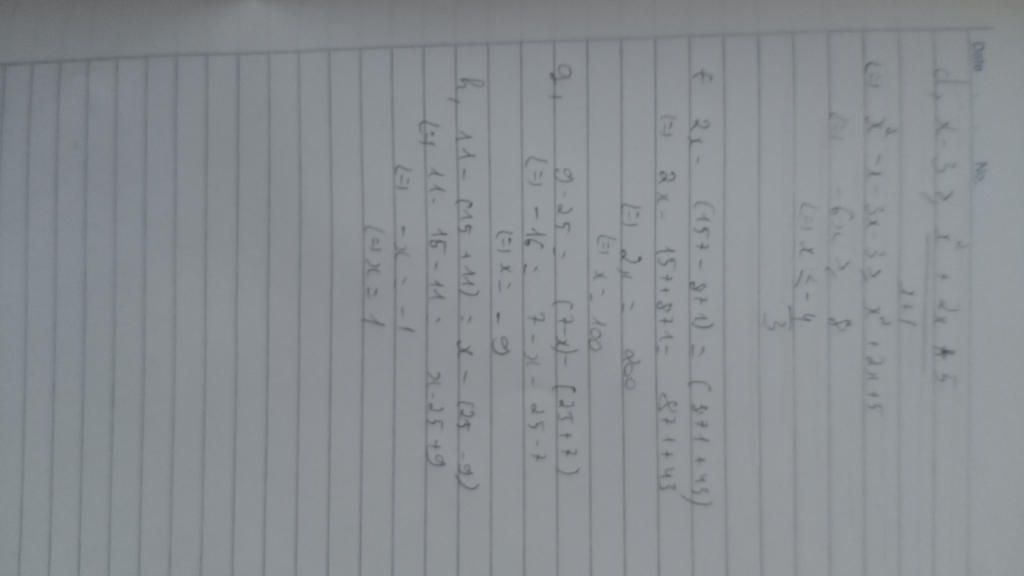 Date No.
d, x - 3 ≥ x² + 2x + 5
x+1
(=) x² - x - 3x - 3 ≥ x² + 2x + 5
(=) - 6x ≥ 8
(=) x ≤ - 4
3
f 2x - (157 - 87+1) = (87+1+43)
(=) 2x - 157+87+1 = 87+1+43
(=) 2x = 200
(=) x = 100
g, 9 - 25 = (7-x) - (25+7)
(=) - 16 = 7 - x - 25 - 7
(=) x = - 9
h, 11 - (15 + 11) = x - (25 - 9)
(=) 11 - 15 - 11 = x - 25 + 9
(=) - x = - 1
(=) x = 1